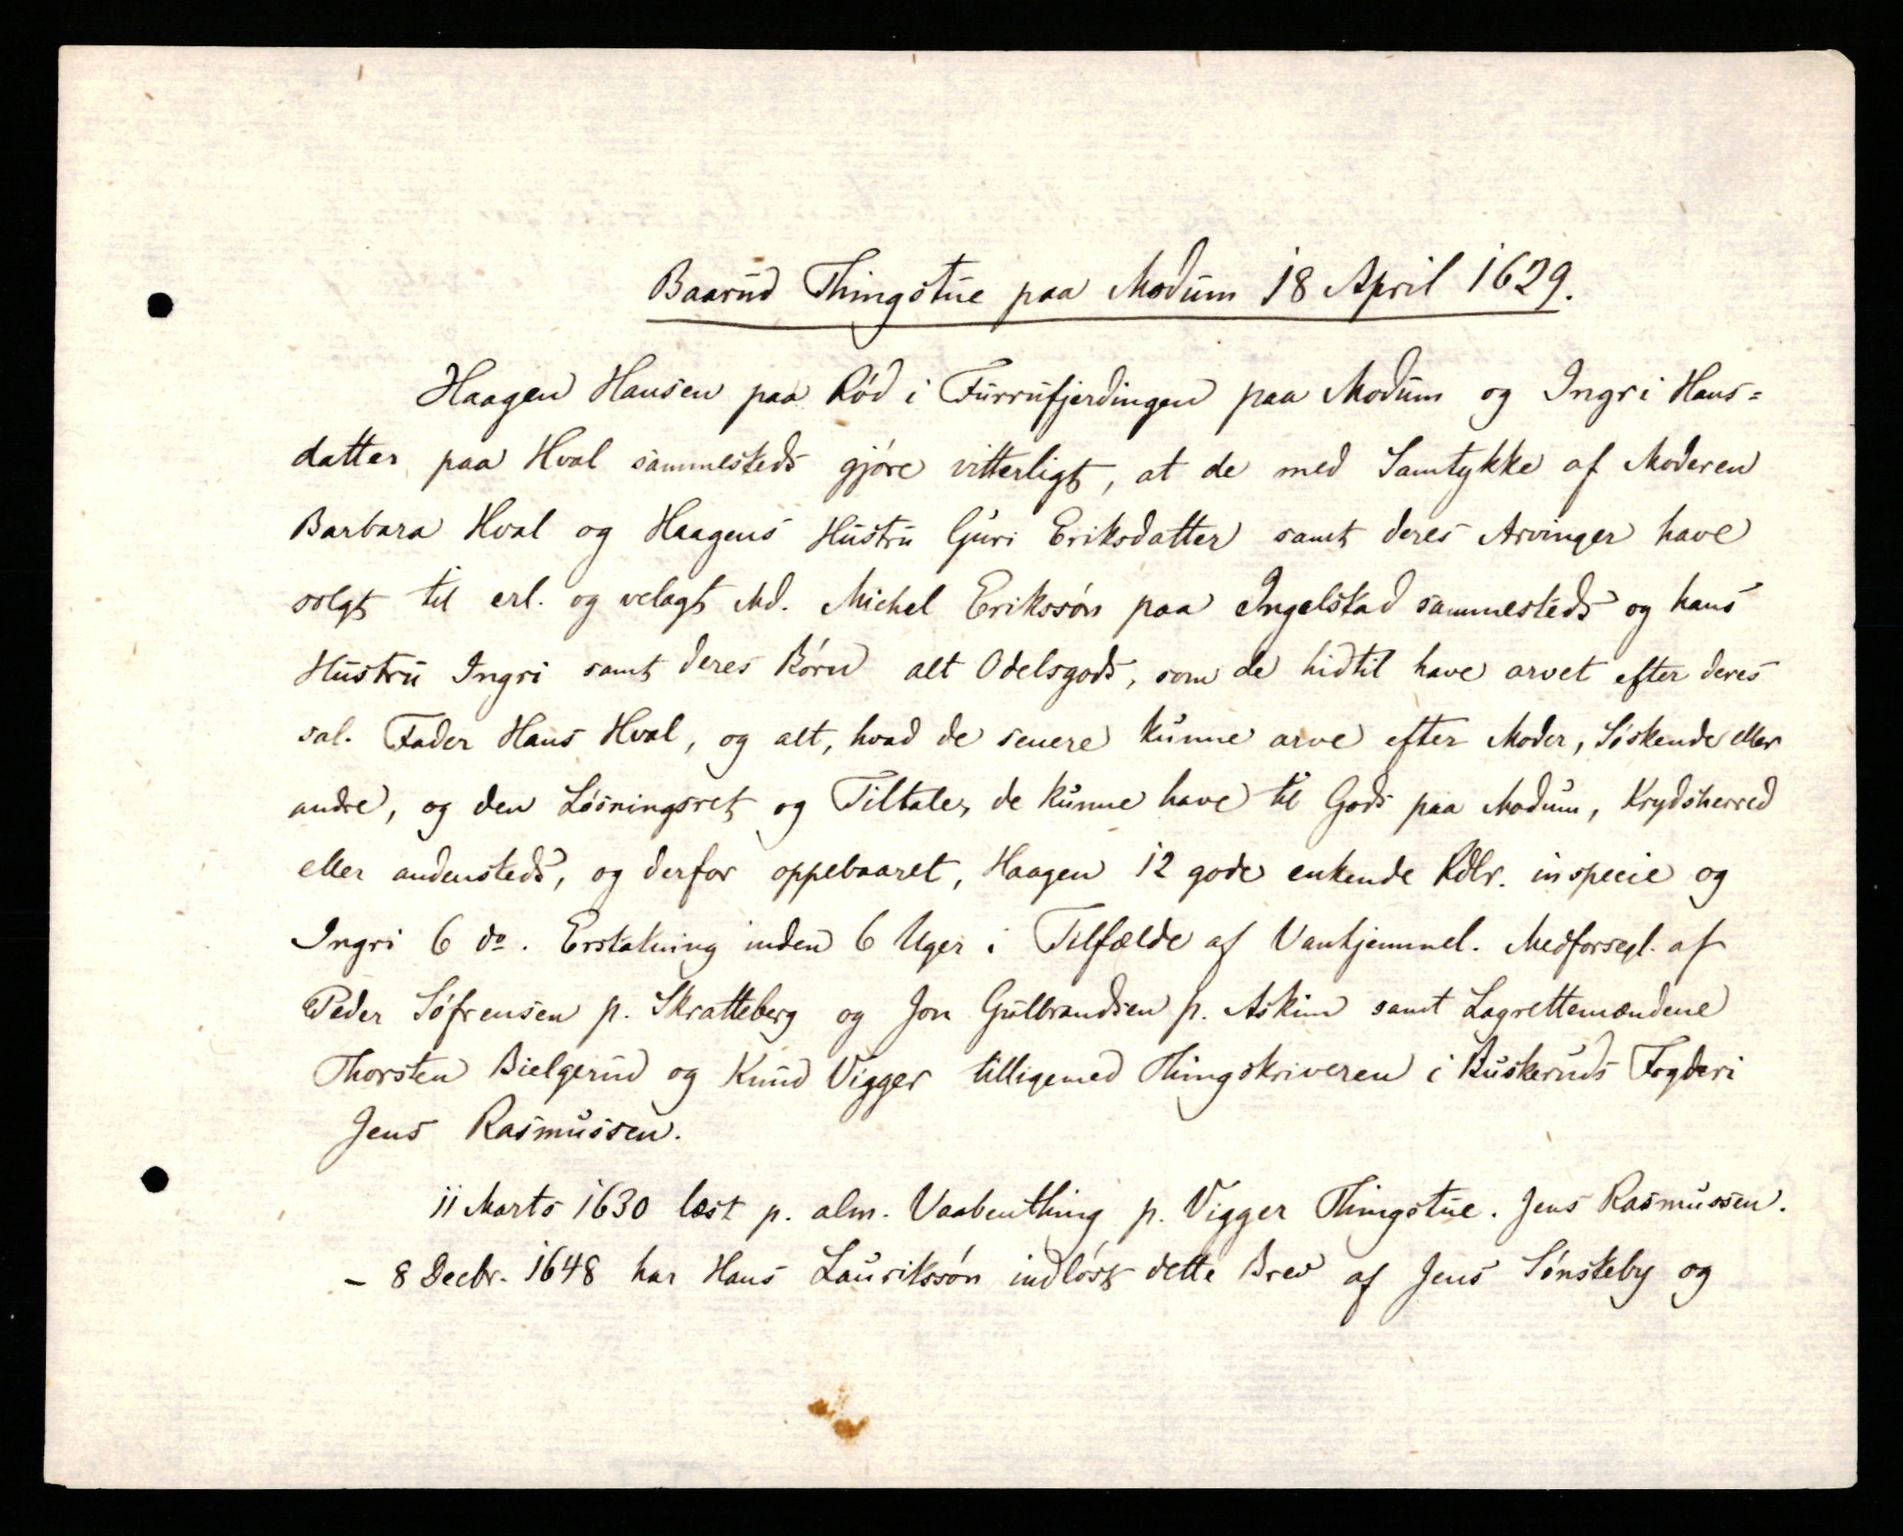 Baarud Thingstue paa Modum 18 April 1629.
Haagen Hansen paa Rød i Furrufjerdingen paa Modum og Ingri Hans=
datter paa Hval sammesteds gjøre vitterligt, at de med Samtykke af Moderen
Barbara Hval og Haagens Hustru Guri Eriksdatter samt deres Arvinger have
solgt til erl. og velagt Md. Michel Erikssøn paa Ingelstad sammesteds og hans
Hustru Ingri samt deres Børn alt Odelsgods, som de hidtil have arvet efter deres
sal. Fader Hans Hval, og alt, hvad de senere kunne arve efter Moder, Søskende eller
andre, og den Løsningsret og Tiltale, de kunne have til Gods paa Modum, Krydsherred
eller andensteds, og derfor oppebaaret, Haagen 12 gode enkende Rdlr. in specie og
Ingri 6 do. Erstatning inden 6 Uger i Tilfælde af Vanhjemmel. Medforsegl. af
Peder Søfrensen p. Skratteberg og Jon Gulbrandsen p. Askim samt Lagrettemændene
Thorsten Bielgerud og Knud Vigger tilligemed Thingskriveren i Buskeruds Fogderi
Jens Rasmussen.
11 Marts 1630 læst p. alm. Vaabenthing p. Vigger Thingstue. Jens Rasmussen.
– 8 Decbr. 1648 har Hans Laurikssøn indløst dette Brev af Jens Sønsteby og